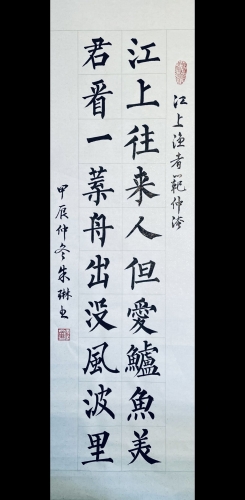 江上渔者範仲淹
江上往来人但愛鱸魚美
君看一葉舟出没風波里
甲辰仲冬朱琳书